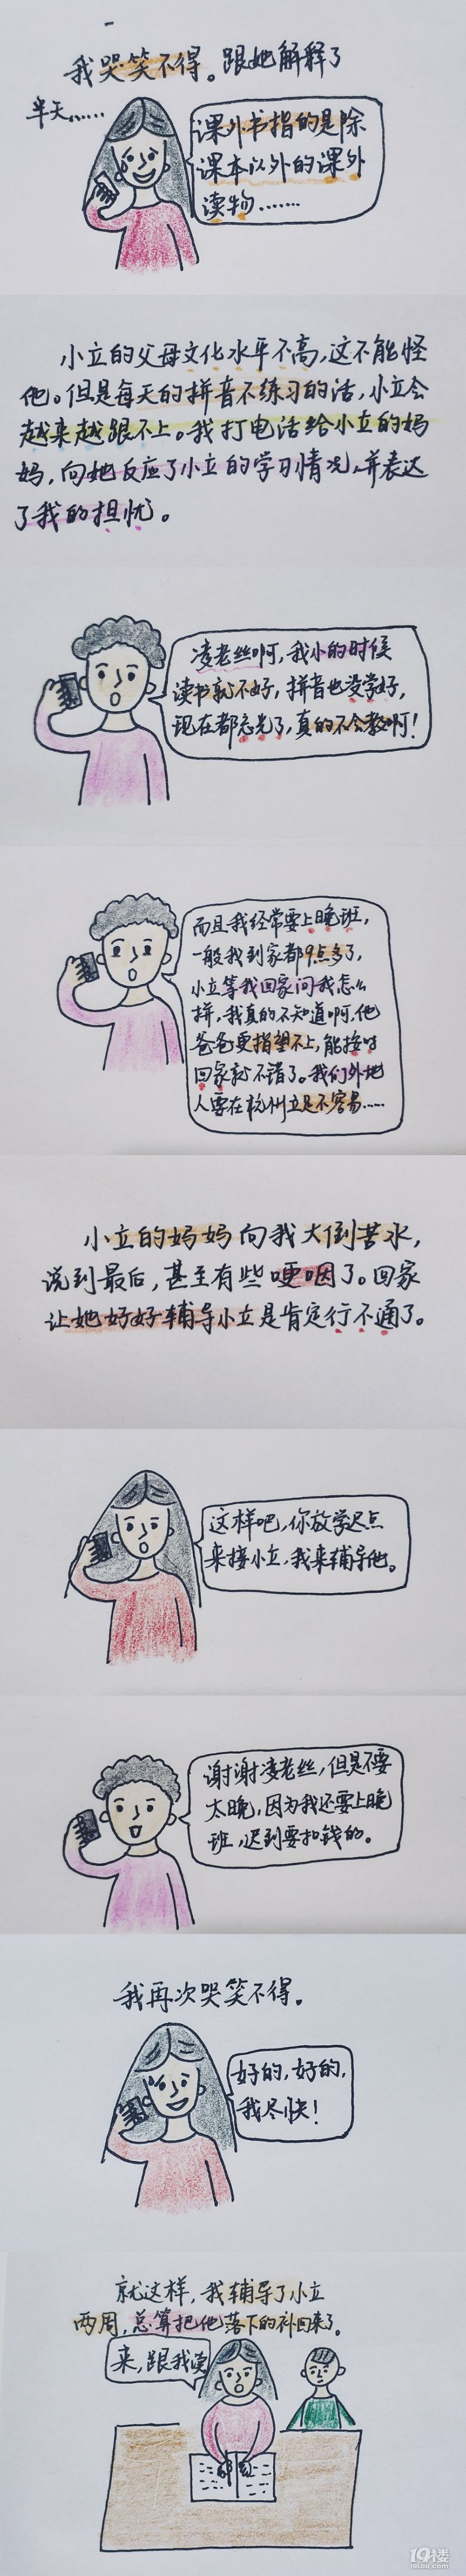 我哭笑不得。跟她解释了
半天……
课外书指的是除
课本以外的课外
读物……
小立的父母文化水平不高,这不能怪
他。但是每天的拼音不练习的话,小立会
越来越跟不上。我打电话给小立的妈
妈,向她反应了小立的学习情况,并表达
了我的担忧。
凌老丝啊,我小的时候
读书就不好,拼音也没学好,
现在都忘光了,真的不会教啊!
而且我经常要上晚班,
一般我到家都9点多了,
小立等我回家问我怎么
拼,我真的不知道啊,他
爸爸更指望不上,能按时
回家就不错了。我们外地
人要在杭州立足不容易……
小立的妈妈向我大倒苦水,
说到最后,甚至有些哽咽了。回家
让她好好辅导小立是肯定行不通了。
这样吧,你放学迟点
来接小立,我来辅导他。
谢谢凌老丝,但是不要
太晚,因为我还要上晚
班,迟到要扣钱的。
我再次哭笑不得。
好的,好的,
我尽快!
就这样,我辅导了小立
两周,总算把他落下的补回来了。
来,跟我读
19楼